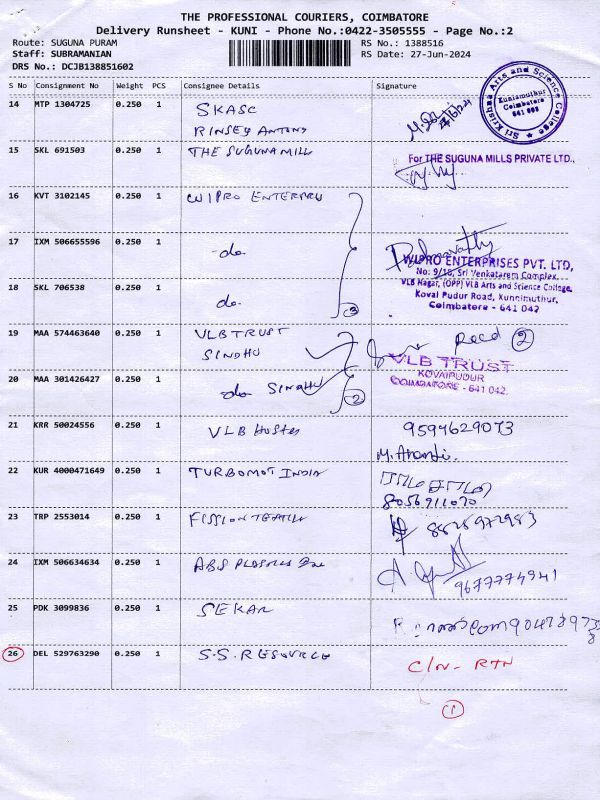 THE PROFESSIONAL COURIERS, COIMBATORE
Delivery Runsheet - KUNI - Phone No.:0422-3505555 - Page No.:2
Route: SUGUNA PURAM
Staff: SUBRAMANIAN
DRS No.: DCJB138851602
RS No.: 1388516
RS Date: 27-Jun-2024
S No Consignment No Weight PCS Consignee Details Signature
14 MTP 1304725 0.250 1 SKASC
RINSEY ANTONY
Sri Krishna Arts and Science College
Kuniamuthur
Coimbatore
641 008
15 SKL 691503 0.250 1 THE SUGUNA MILL
For THE SUGUNA MILLS PRIVATE LTD.,
16 KVT 3102145 0.250 1 WIPRO ENTERPRU
17 IXM 506655596 0.250 1 -do
WIPRO ENTERPRISES PVT. LTD,
No: 9/18, Sri Venkataram Complex,
VLB Nagar, (OPP) VLB Arts and Science College,
Koval Pudur Road, Kunnimuthur,
Coimbatore - 641 042
18 SKL 706538 0.250 1 do
3
19 MAA 574463640 0.250 1 VLB TRUST
SINDHU
Recd 2
VLB TRUST
KOVAIPUDUR
COIMBATORE - 641 042.
20 MAA 301426427 0.250 1 do SINDHU
2
21 KRR 50024556 0.250 1 VLB Hostes 9594629073
M. Anandi.
22 KUR 4000471649 0.250 1 TURBOMOT INDIA
8056911070
23 TRP 2553014 0.250 1 FISSION 8828972983
24 IXM 506634634 0.250 1 ABS 9677774941
25 PDK 3099836 0.250 1 SEKAR
26 DEL 529763290 0.250 1 S.S. RESOURCE C/N- RTN
1